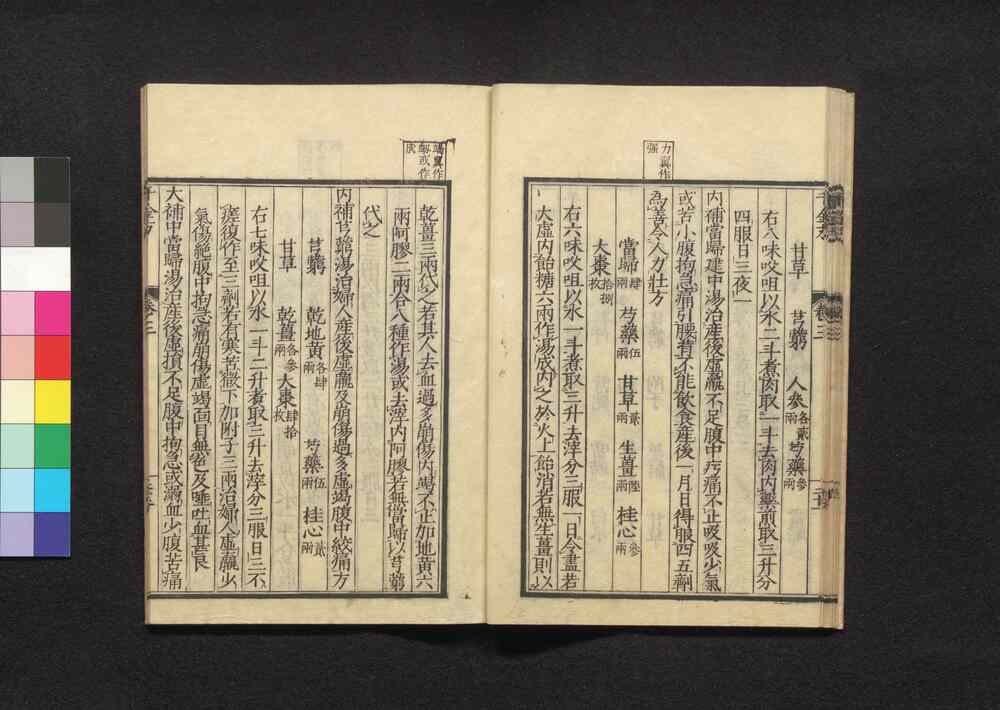 甘草 芎藭 人參各貳兩 芍藥參兩
右八味㕮咀以水二斗煮肉取一斗去肉內藥煎取三升分
四服日三夜一
內補當歸建中湯治產後虛羸不足腹中㽲痛不止吸吸少氣
力翼作
強
或苦小腹拘急痛引腰背不能飲食產後一月日得服四五劑
為善令人力壯方
當歸肆兩 芍藥伍兩 甘草貳兩 生薑陸兩 桂心參兩
大棗拾捌枚
右六味㕮咀以水一斗煮取三升去滓分三服一日令盡若
大虛內飴糖六兩作湯成內之於火上飴消若無生薑則以
乾薑三兩代之若其人去血過多崩傷內竭不止加地黃六
兩阿膠二兩合八種作湯或去滓內阿膠若無當歸以芎藭
代之
內補芎藭湯治婦人產後虛羸及崩傷過多虛竭腹中絞痛方
芎藭 乾地黃各肆兩 芍藥伍兩 桂心貳兩
甘草 乾薑各參兩 大棗肆拾枚
右七味㕮咀以水一斗二升煮取三升去滓分三服日三不
瘥復作至三劑若有寒苦微下加附子三兩治婦人虛羸少
氣傷絕腹中拘急痛崩傷虛竭面目無色及唾吐血甚良
大補中當歸湯治產後虛損不足腹中拘急或溺血少腹苦痛